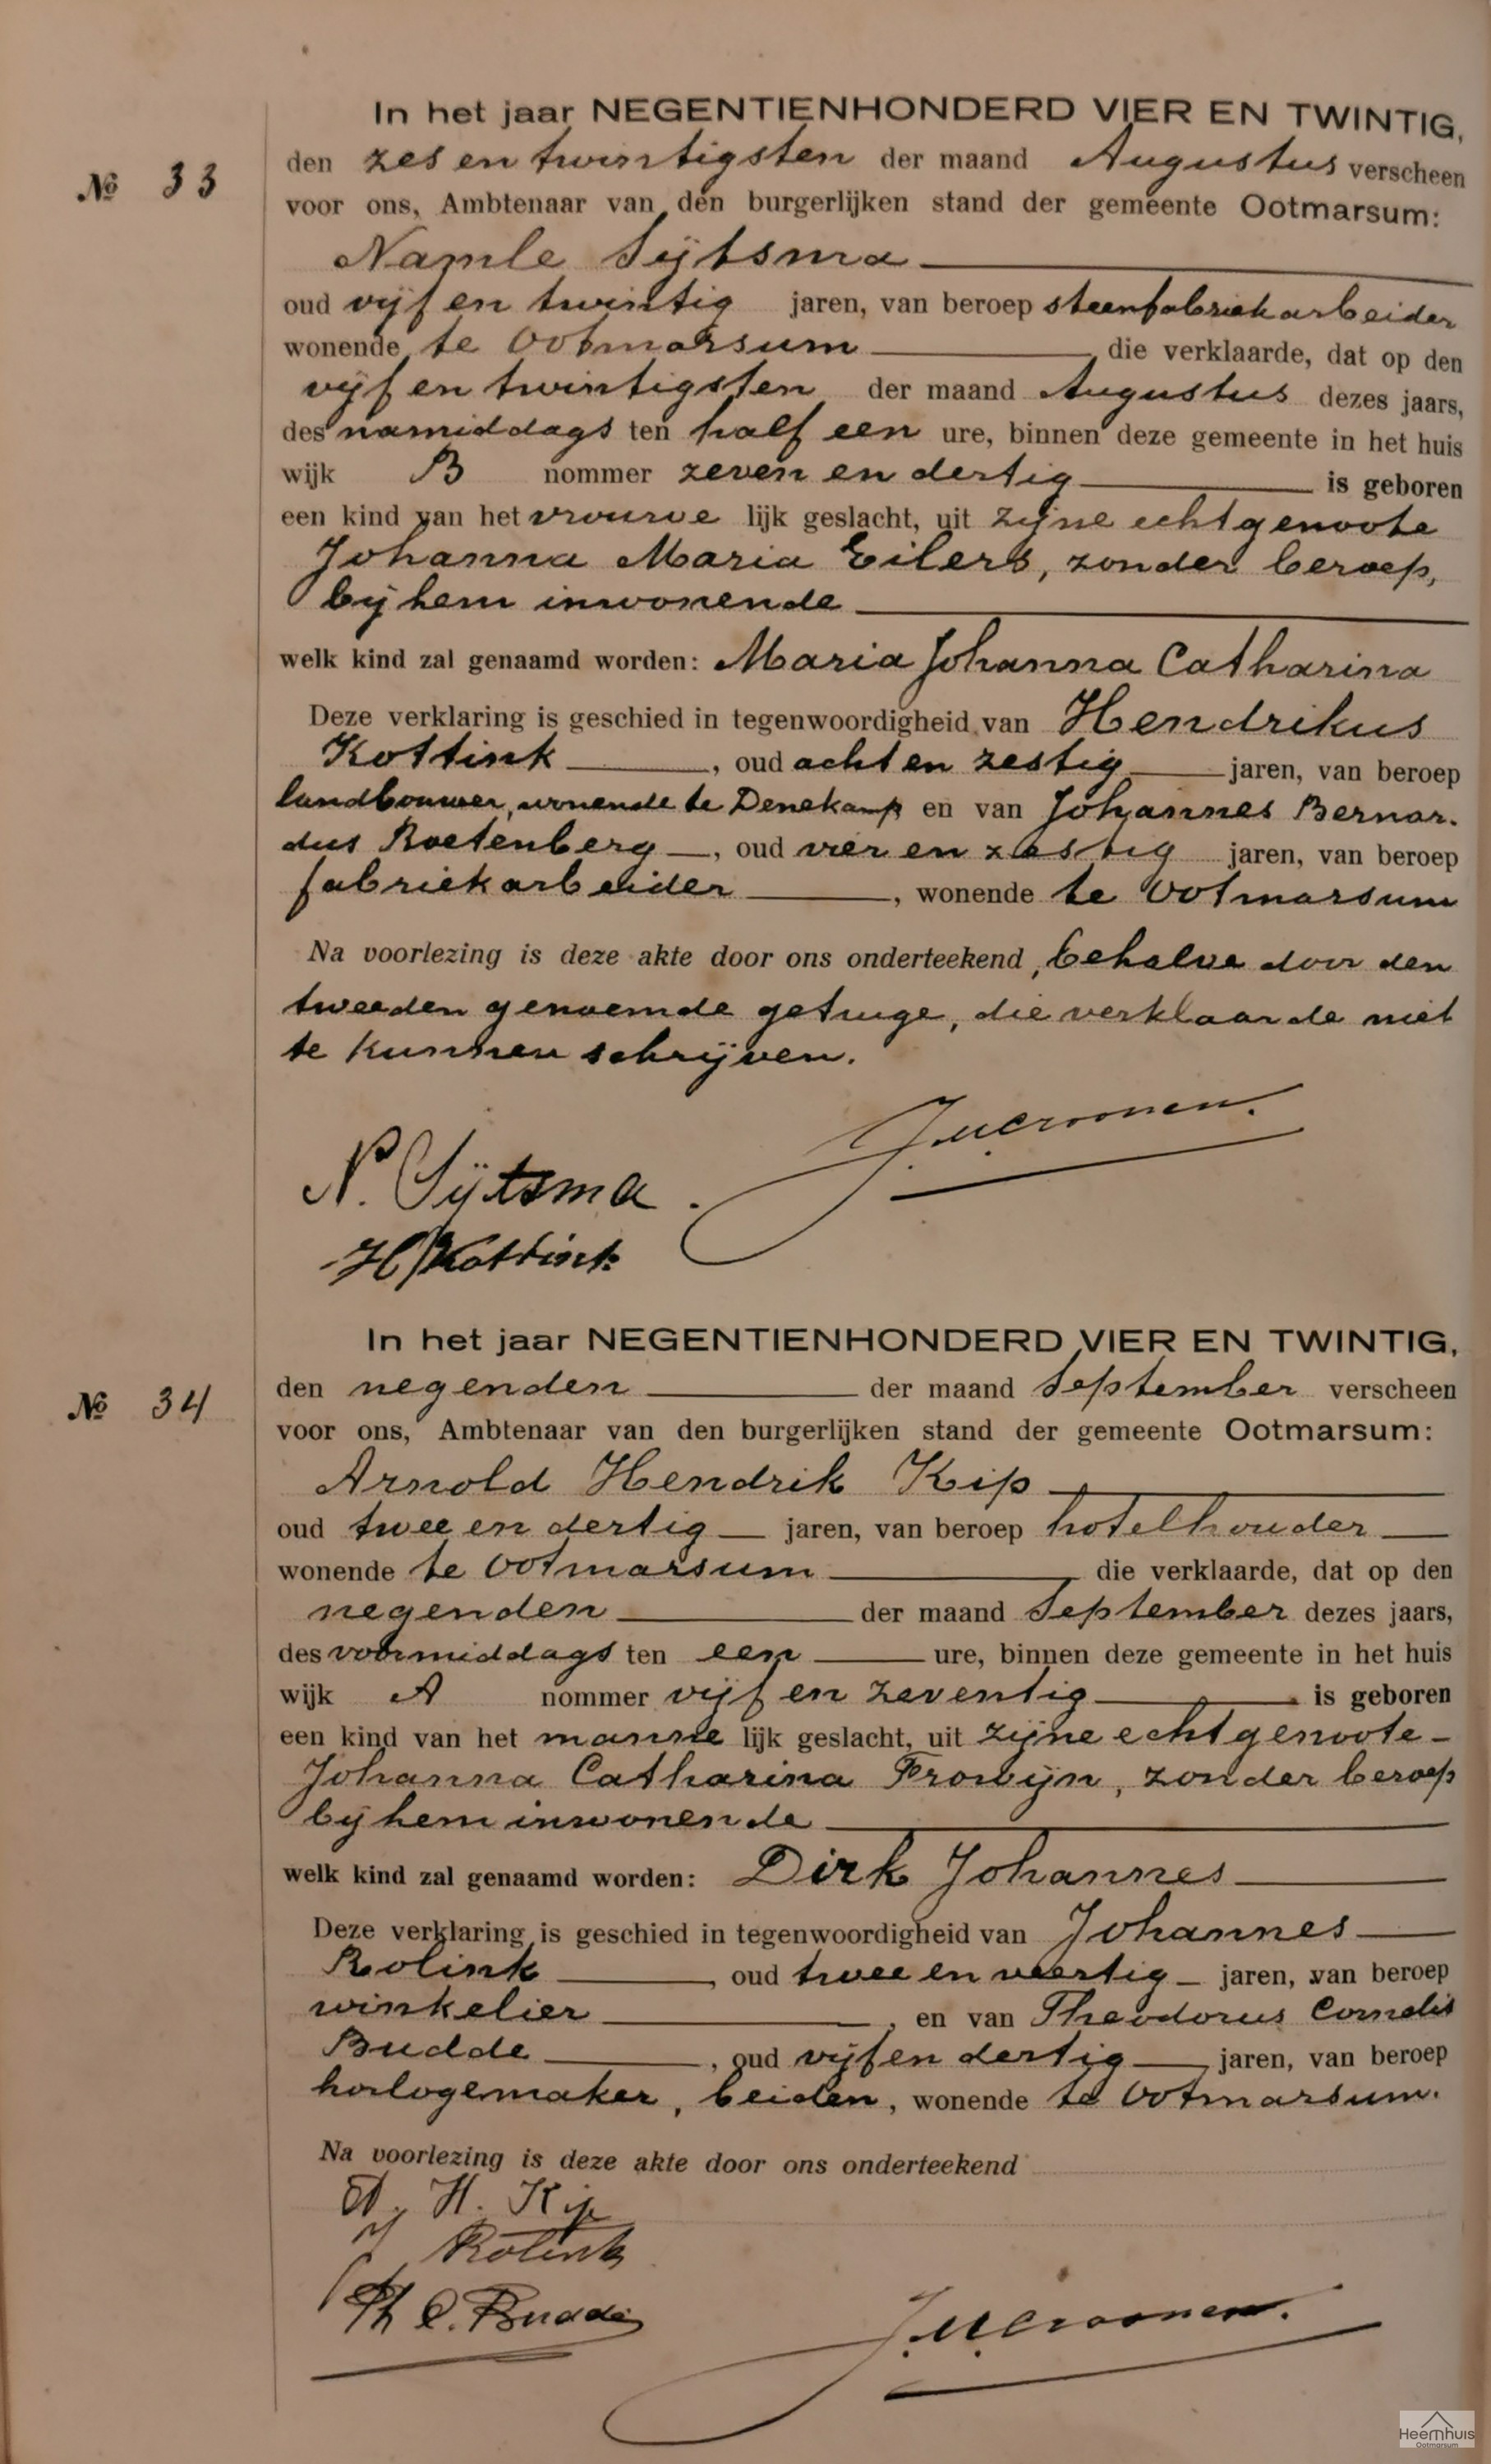 In het jaar NEGENTIENHONDERD VIER EN TWINTIG,
№ 33
den zes en twintigsten der maand Augustus verscheen
voor ons, Ambtenaar van den burgerlijken stand der gemeente Ootmarsum:
Namle Sijtsma
oud vijf en twintig jaren, van beroep steenfabriekarbeider
wonende te Ootmarsum die verklaarde, dat op den
vijf en twintigsten der maand Augustus dezes jaars,
des namiddags ten half een ure, binnen deze gemeente in het huis
wijk B nommer zeven en dertig is geboren
een kind van het vrouwe lijk geslacht, uit zijne echtgenoote
Johanna Maria Eilers, zonder beroep,
bij hem inwonende
welk kind zal genaamd worden: Maria Johanna Catharina
Deze verklaring is geschied in tegenwoordigheid van Hendrikus
Kottink, oud acht en zestig jaren, van beroep
landbouwer, wonende te Denekamp en van Johannes Bernar-
dus Roetenberg, oud vier en zestig jaren, van beroep
fabriekarbeider, wonende te Ootmarsum
Na voorlezing is deze akte door ons onderteekend, behalve door den
tweeden genoemde getuige, die verklaarde niet
te kunnen schrijven.
N. Sijtsma.
H Kottink
In het jaar NEGENTIENHONDERD VIER EN TWINTIG,
№ 34
den negenden der maand September verscheen
voor ons, Ambtenaar van den burgerlijken stand der gemeente Ootmarsum:
Arnold Hendrik Kip
oud twee en dertig jaren, van beroep hotelhouder
wonende te Ootmarsum die verklaarde, dat op den
negenden der maand September dezes jaars,
des voormiddags ten een ure, binnen deze gemeente in het huis
wijk A nommer vijf en zeventig is geboren
een kind van het manne lijk geslacht, uit zijne echtgenoote
Johanna Catharina Frowijn, zonder beroep
bij hem inwonende
welk kind zal genaamd worden: Dirk Johannes
Deze verklaring is geschied in tegenwoordigheid van Johannes
Rolink, oud twee en veertig jaren, van beroep
winkelier, en van Theodorus Cornelis
Budde, oud vijf en dertig jaren, van beroep
horlogemaker, beiden, wonende te Ootmarsum.
Na voorlezing is deze akte door ons onderteekend
A. H. Kip
J Rolink
Th C. Budde
Heemhuis
Ootmarsum